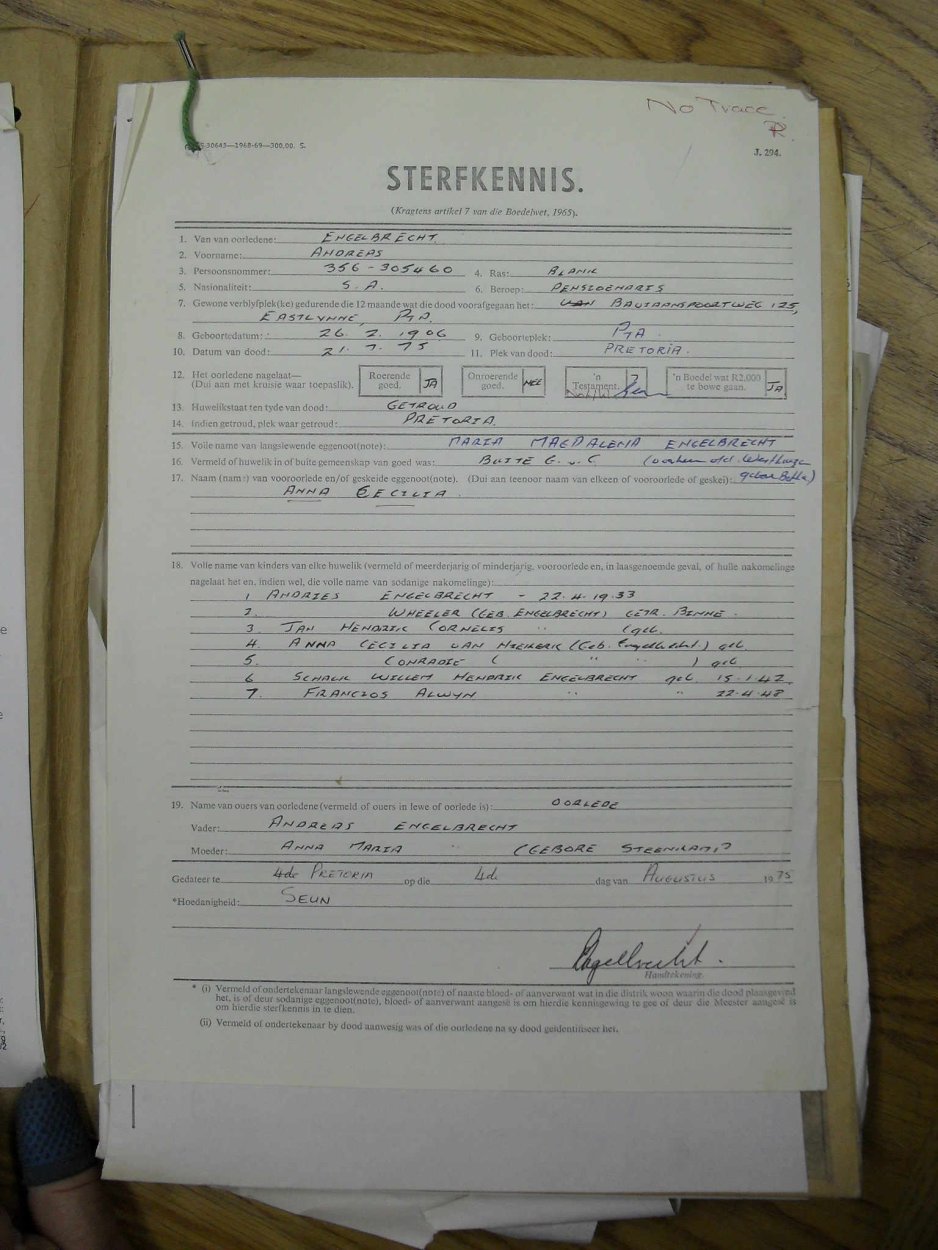 No Trace.
30643—1968-69—300,00. S.
J. 294.
STERFKENNIS.
(Kragtens artikel 7 van die Boedelwet, 1965).
1. Van van oorledene: ENGELBRECHT
2. Voorname: ANDREAS
3. Persoonsnommer: 356-305460 4. Ras: BLANK
5. Nasionaliteit: S.A. 6. Beroep: PENSIOENARIS
7. Gewone verblyfplek(ke) gedurende die 12 maande wat die dood voorafgegaan het: BAVIAANSPOORTWEG 125,
EASTLYNNE, PTA.
8. Geboortedatum: 26. 2. 1906 9. Geboorteplek: PTA
10. Datum van dood: 21. 7. 75 11. Plek van dood: PRETORIA.
12. Het oorledene nagelaat—
(Dui aan met kruisie waar toepaslik).
Roerende goed. JA
Onroerende goed. NEE
'n Testament. ?
'n Boedel wat R2,000 te bowe gaan. JA
13. Huwelikstaat ten tyde van dood: GETROUD
14. Indien getroud, plek waar getroud: PRETORIA.
15. Volle name van langslewende eggenoot(note): MARIA MAGDALENA ENGELBRECHT
16. Vermeld of huwelik in of buite gemeenskap van goed was: BUITE G. v. G. (voorheen
17. Naam (name) van vooroorlede en/of geskeide eggenoot(note). (Dui aan teenoor naam van elkeen of vooroorlede of geskei): gebore Botha)
ANNA CECILIA.
18. Volle name van kinders van elke huwelik (vermeld of meerderjarig of minderjarig, vooroorlede en, in laasgenoemde geval, of hulle nakomelinge
nagelaat het en, indien wel, die volle name van sodanige nakomelinge):
1 ANDRIES ENGELBRECHT - 22.4.1933
2. WHEELER (GEB. ENGELBRECHT) GETR. BINNE.
3 JAN HENDRIK CORNELIS " (geb.
4. ANNA CECILIA VAN NIEKERK (Geb. Engelbrecht) geb.
5. CONRADIE ( " " ) geb
6 SCHALK WILLEM HENDRIK ENGELBRECHT geb. 15.1.42
7. FRANCIOS ALWYN " " 22.4.48
19. Name van ouers van oorledene (vermeld of ouers in lewe of oorlede is): OORLEDE
Vader: ANDREAS ENGELBRECHT
Moeder: ANNA MARIA " (GEBORE STEENKAMP)
Gedateer te 4de PRETORIA op die 4de dag van AUGUSTUS 1975
*Hoedanigheid: SEUN
Engelbrecht.
Handtekening.
* (i) Vermeld of ondertekenaar langslewende eggenoot(note) of naaste bloed- of aanverwant wat in die distrik woon waarin die dood plaasgevind
het, is of deur sodanige eggenoot(note), bloed- of aanverwant aangesê is om hierdie kennisgewing te gee of deur die Meester aangesê is
om hierdie sterfkennis in te dien.
(ii) Vermeld of ondertekenaar by dood aanwesig was of die oorledene na sy dood geïdentifiseer het.